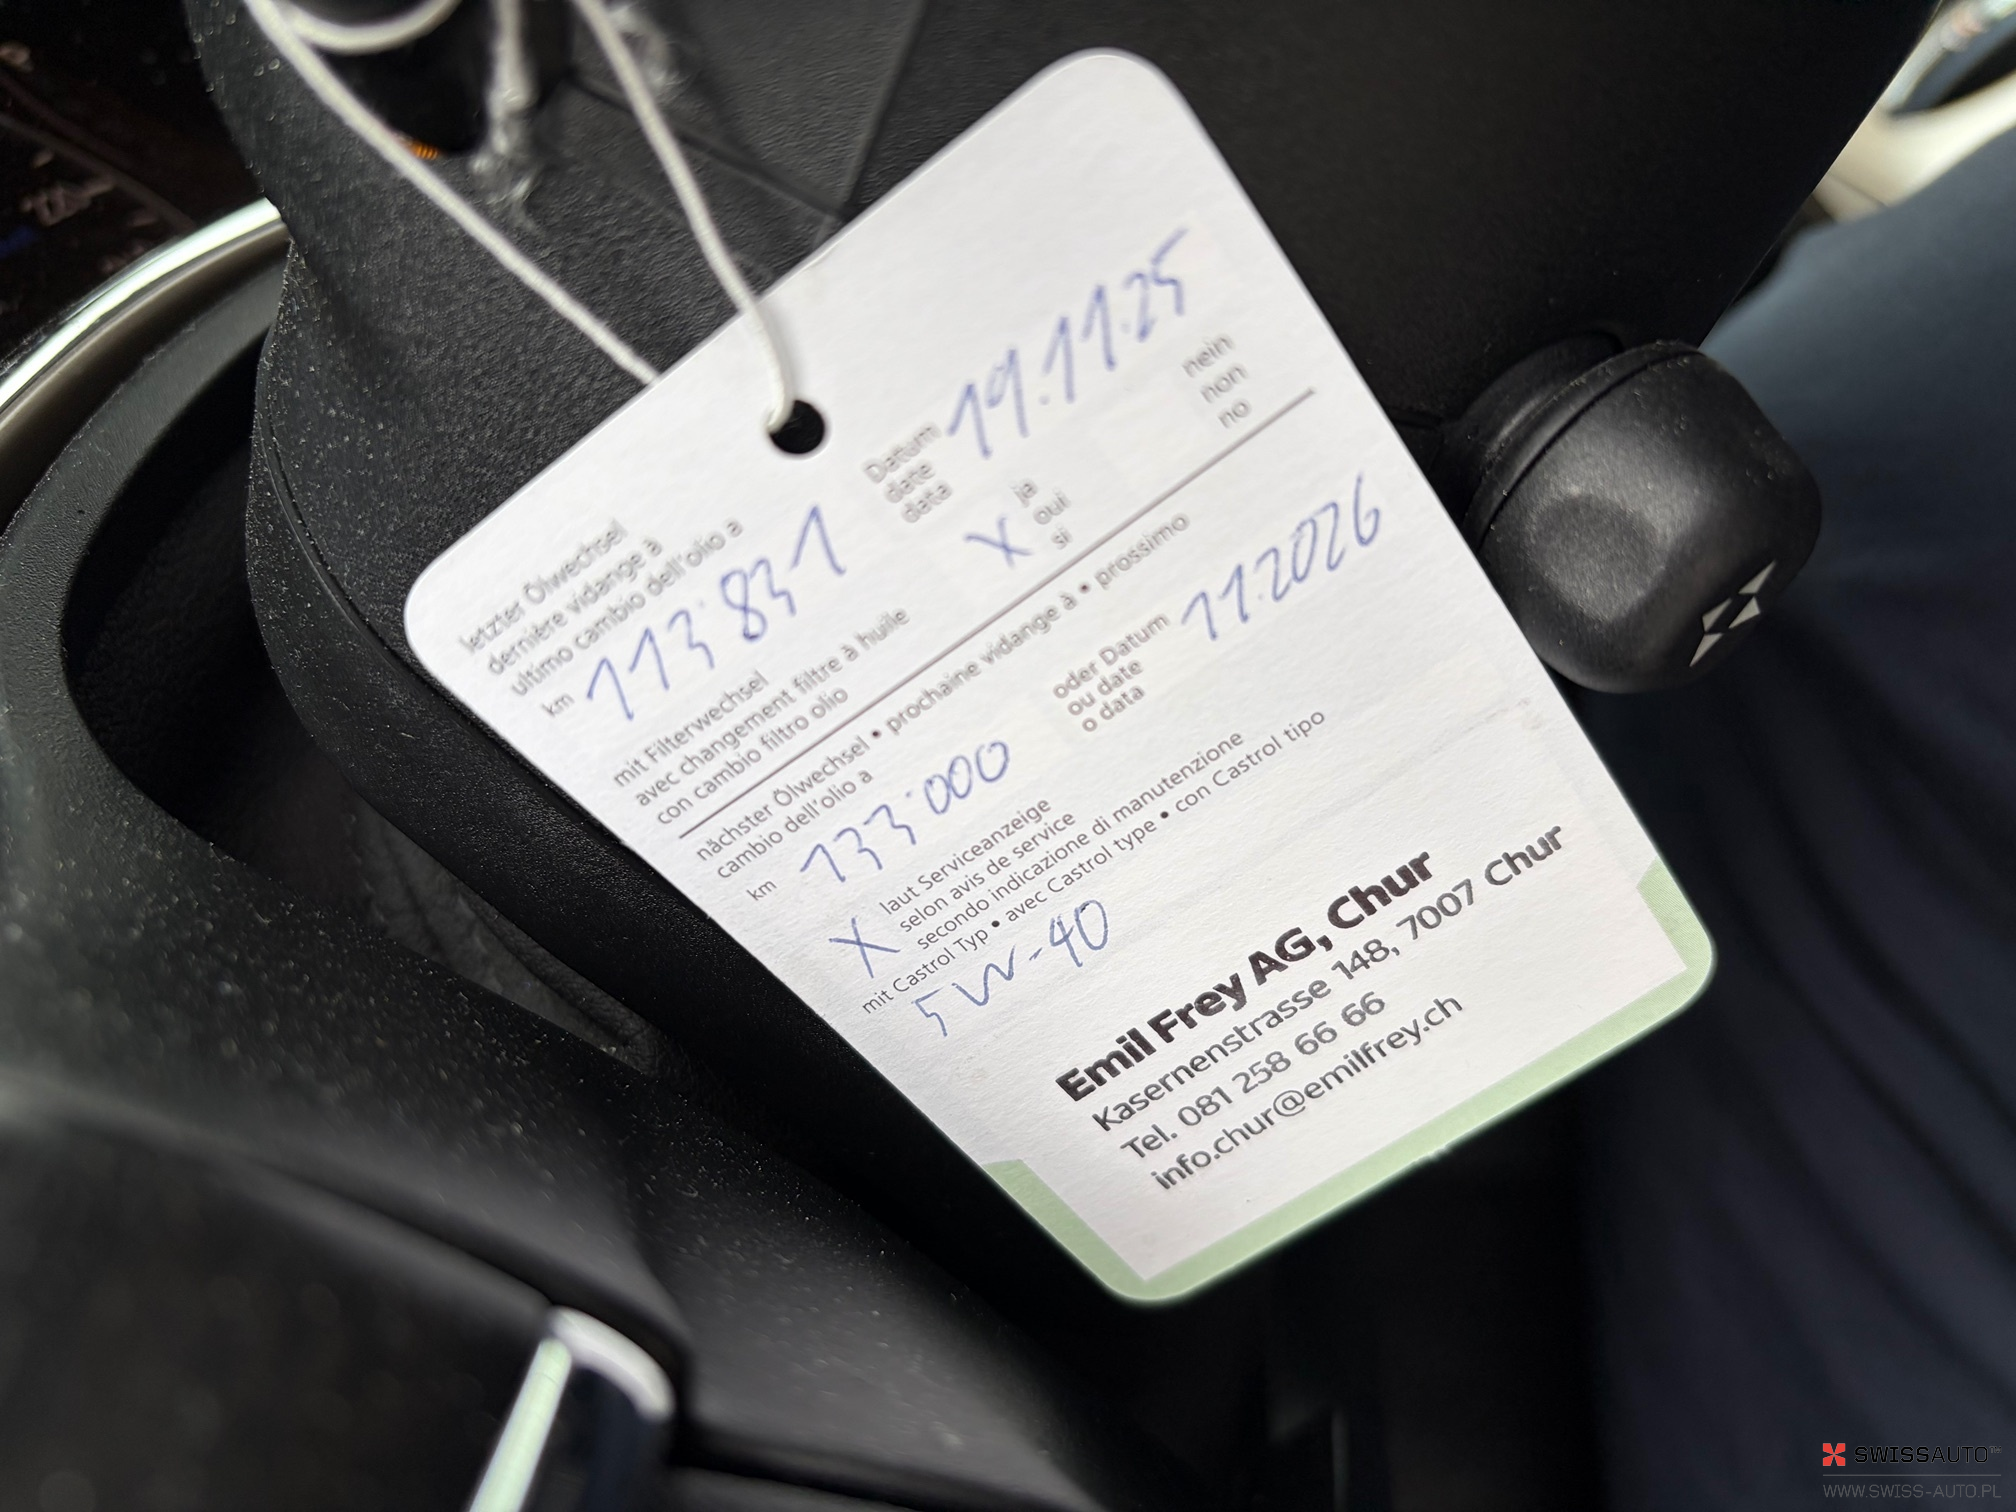 letzter Ölwechsel
dernière vidange à
ultimo cambio dell'olio a
km 113'831
Datum
date
data
19.11.25
mit Filterwechsel
avec changement filtre à huile
con cambio filtro olio
X
ja
oui
si
nein
non
no
nächster Ölwechsel • prochaine vidange à • prossimo
cambio dell'olio a
km 133'000
oder Datum
ou date
o data
11.2026
X
laut Serviceanzeige
selon avis de service
secondo indicazione di manutenzione
mit Castrol Typ • avec Castrol type • con Castrol tipo
5W-40
Emil Frey AG, Chur
Kasernenstrasse 148, 7007 Chur
Tel. 081 258 66 66
info.chur@emilfrey.ch
SWISSAUTO
WWW.SWISS-AUTO.PL